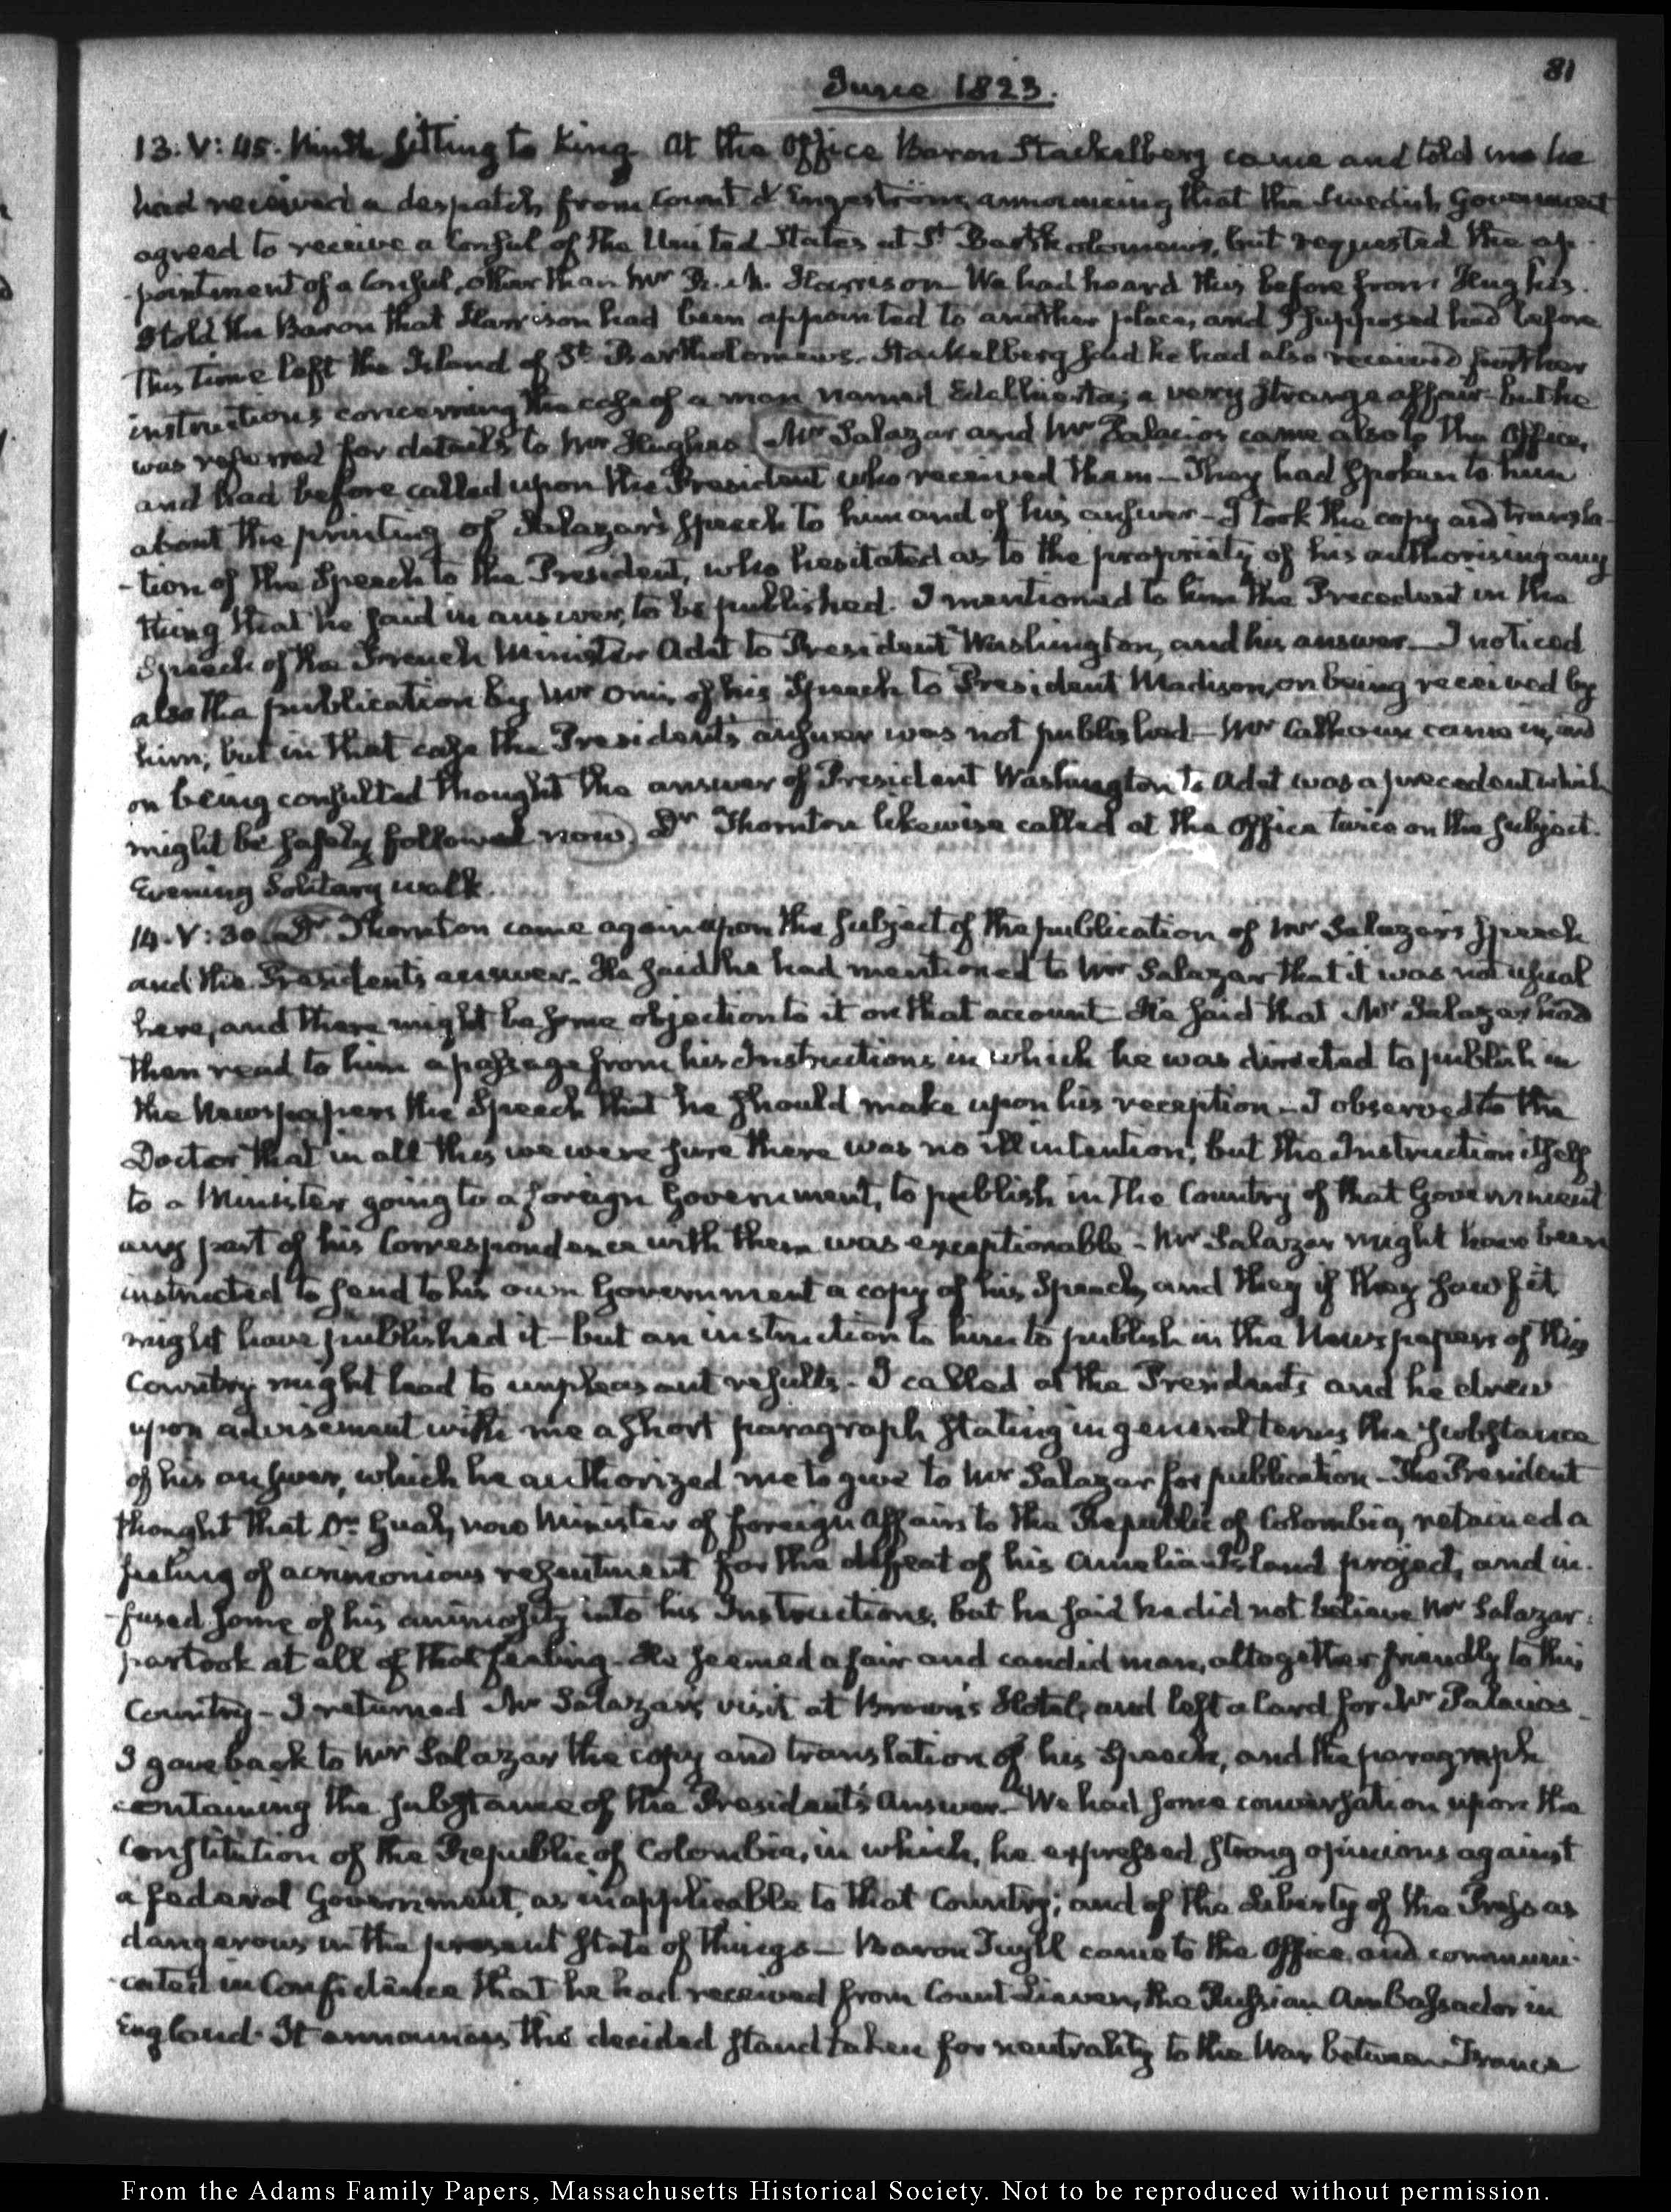 81
June 1823.
13. V: 45. Ninth sitting to King. At the Office Baron Stackelberg came and told me he
had received a despatch from Count d'Engeström, announcing that the Swedish Government
agreed to receive a Consul of the United States at St. Bartholomews, but requested the ap-
-pointment of a Consul, other than Mr R. M. Harrison. We had heard this before from Hughes.
I told the Baron that Harrison had been appointed to another place, and I supposed had before
this time left the Island of St Bartholomews. Stackelberg said he had also received further
instructions concerning the case of a man named a very strange affair but he
was referred for details to Mr Hughes. Mr Salazar and Mr Palacios came also to the Office,
and had before called upon the President who received them — They had spoken to him
about the printing of Salazar's speech to him and of his answer — I took the copy and transla-
-tion of the Speech to the President, who hesitated as to the propriety of his authorising any
thing that he said in answer, to be published. I mentioned to him the Precedent in the
Speech of the French Minister Adet to President Washington, and his answer — I noticed
also the publication by Mr Onis, of his Speech to President Madison, on being received by
him; but in that case the President's answer was not published — Mr Calhoun came in, and
on being consulted thought the answer of President Washington to Adet was a precedent which
might be safely followed now. Dr Thornton likewise called at the Office twice on the subject.
Evening Solitary walk.
14. V: 30. Dr Thornton came again upon the subject of the publication of Mr Salazar's speech
and the President's answer. He said he had mentioned to Mr Salazar that it was not usual
here, and there might be some objection to it on that account. He said that Mr Salazar had
then read to him a passage from his Instructions in which he was directed to publish in
the Newspapers the Speech that he should make upon his reception — I observed to the
Doctor that in all this we were sure there was no ill intention; but the Instruction itself
to a Minister going to a foreign Government, to publish in the Country of that Government
any part of his Correspondence with them was exceptionable — Mr Salazar might have been
instructed to send to his own Government a copy of his Speech, and they if they saw fit
might have published it — but an instruction to him to publish in the Newspapers of this
Country might lead to unpleasant results. I called at the President's, and he drew
upon advisement with me a short paragraph stating in general terms the substance
of his answer, which he authorized me to give to Mr Salazar for publication — The President
thought that Dr. Gual, now Minister of foreign Affairs to the Republic of Colombia, retained a
feeling of acrimonious resentment for the defeat of his Amelia Island project, and in-
-fused some of his animosity into his Instructions. but he said he did not believe Mr Salazar
partook at all of that feeling — He seemed a fair and candid man, altogether friendly to this
Country — I returned Mr Salazar's visit at Brown's Hotel, and left a Card for Mr Palacios
I gave back to Mr Salazar the copy and translation of his Speech, and the paragraph
containing the substance of the President's Answer — We had some conversation upon the
Constitution of the Republic of Colombia, in which, he expressed strong opinions against
a federal Government, as inapplicable to that Country; and of the Liberty of the Press as
dangerous in the present state of things — Baron Tuyll came to the Office, and communi-
-cated in Confidence that he had received from Count Lieven, the Russian Ambassador in
England. It announces the decided stand taken for neutrality to the War between France
From the Adams Family Papers, Massachusetts Historical Society. Not to be reproduced without permission.